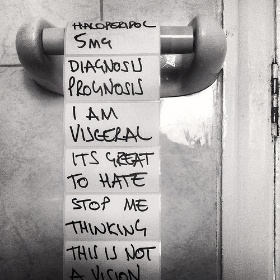 HALOPERIDOL
5mg
DIAGNOSIS
PROGNOSIS
I AM
VISCERAL
ITS GREAT
TO HATE
STOP ME
THINKING
THIS IS NOT
A VISION